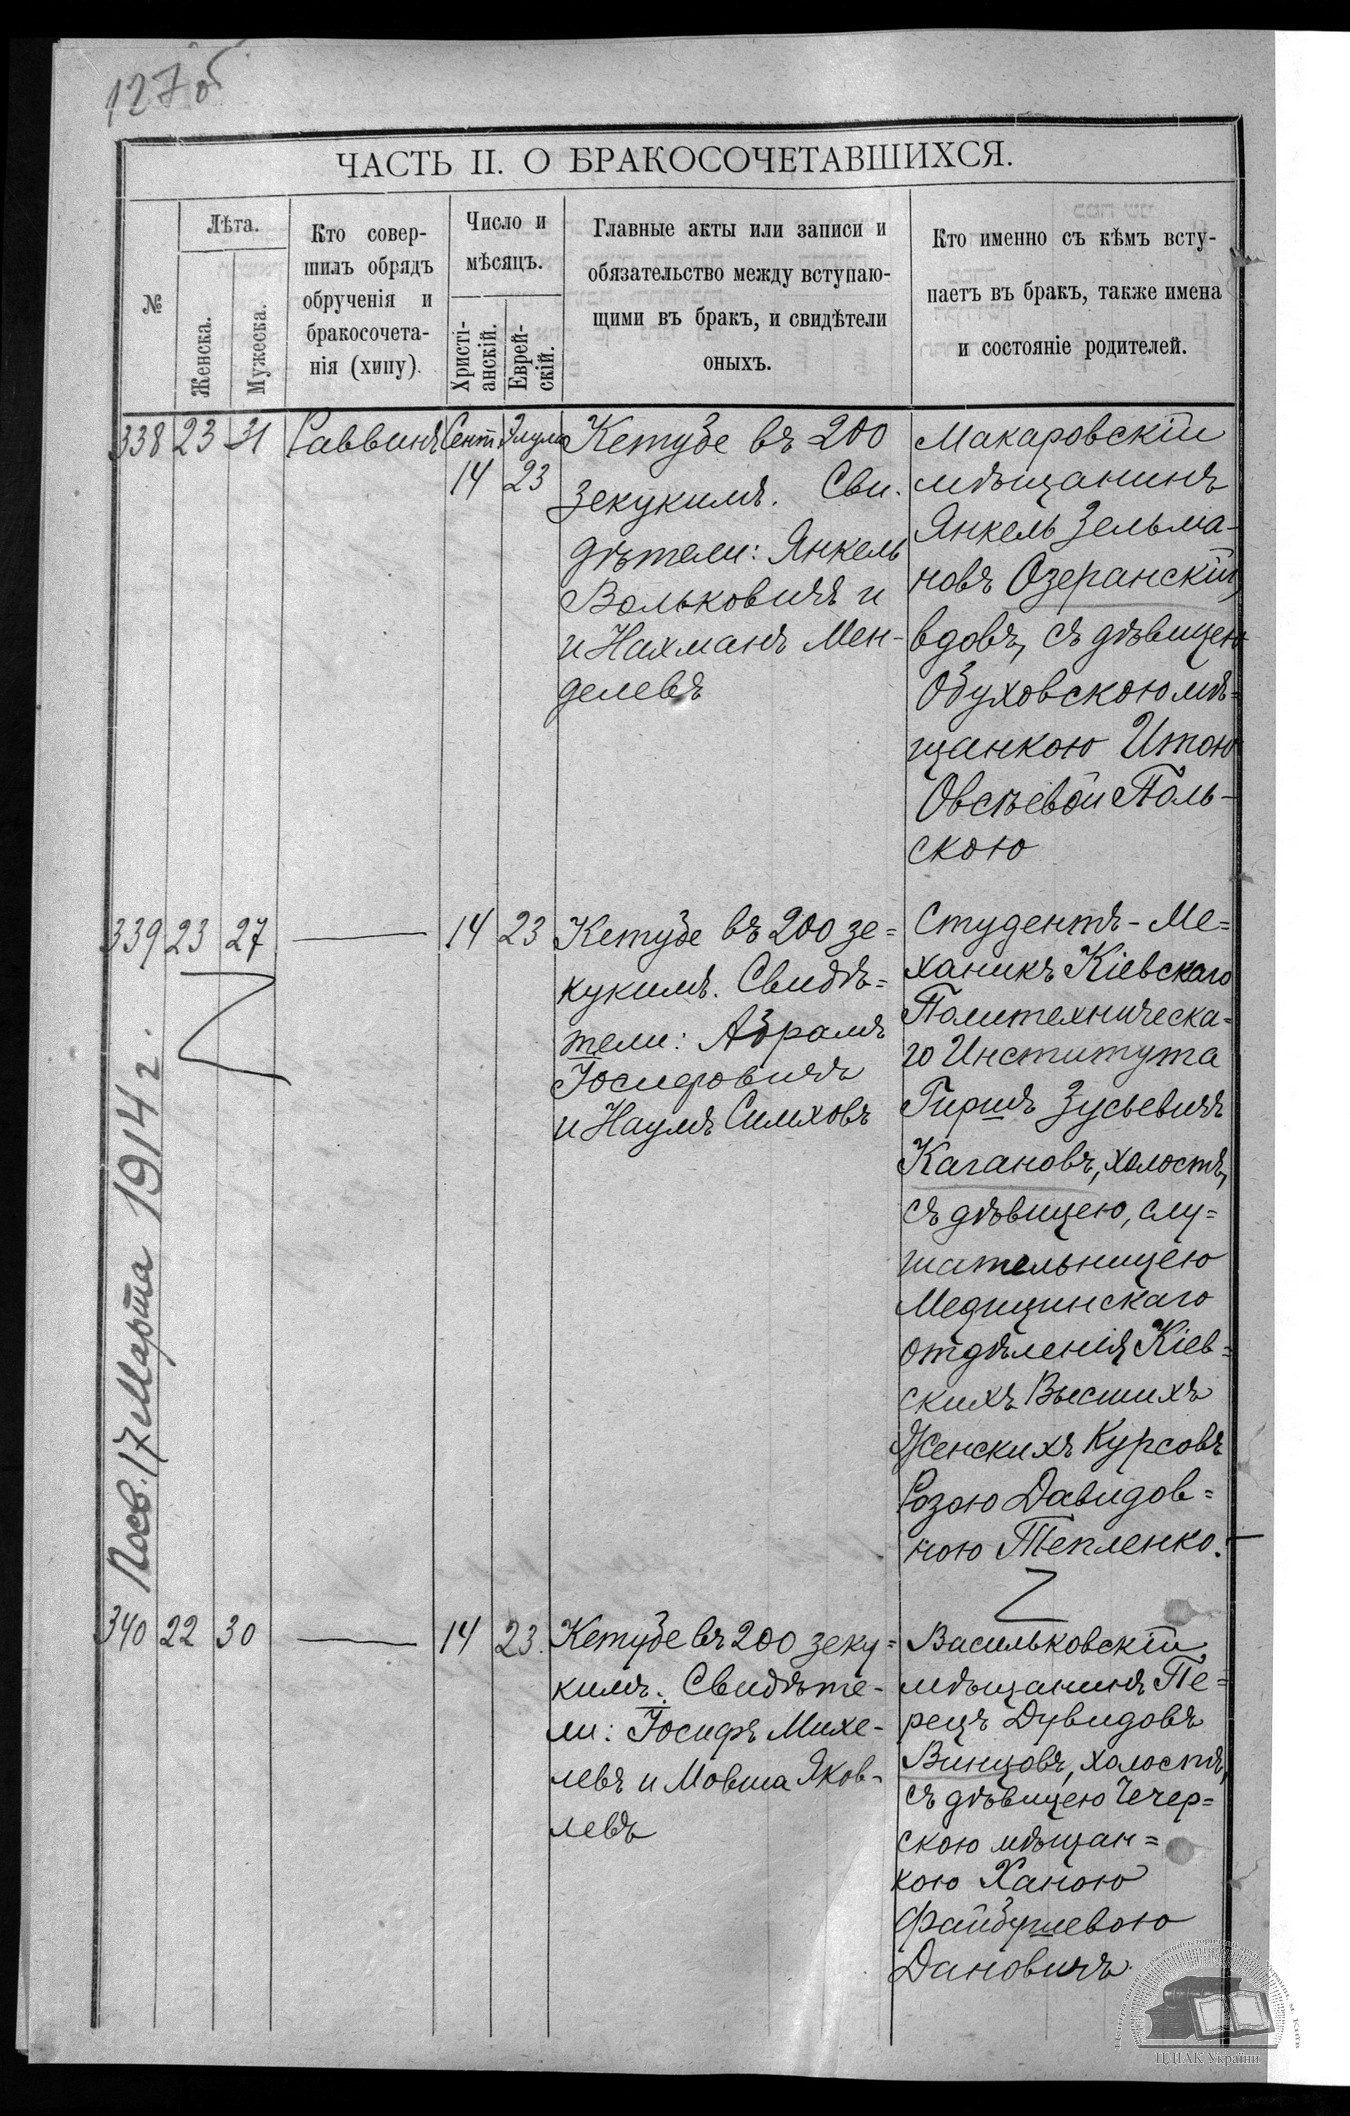 127 об
ЧАСТЬ II. О БРАКОСОЧЕТАВШИХСЯ.
№
Лѣта.
Женска.
Мужеска.
Кто совер-
шилъ обрядъ
обрученія и
бракосочета-
нія (хипу).
Число и
мѣсяцъ.
Христі-
анскій.
Еврей-
скій.
Главные акты или записи и
обязательство между вступаю-
щими въ бракъ, и свидѣтели
оныхъ.
Кто именно съ кѣмъ всту-
паетъ въ бракъ, также имена
и состояніе родителей.
338 23 31 Раввинъ Сент. 14 Элула 23
Кетубе въ 200
зекукимъ. Сви-
дѣтели: Янкель
Вольковичъ и
и Нахманъ Мен-
делевъ
Макаровскій
мѣщанинъ
Янкель Зельма-
новъ Озеранскій,
вдовъ, съ дѣвицею
Обуховскою мѣ=
щанкою Итою
Овсѣевой Поль-
скою
339 23 27 — 14 23
Кетубе въ 200 зе=
кукимъ. Свидѣ=
тели: Абрамъ
Іосифовичъ
и Наумъ Симховъ
Студентъ - Ме=
ханикъ Кіевскаго
Политехническа-
го Института
Гиршъ Зусьевичъ
Кагановъ, холостъ,
съ дѣвицею, слу=
шательницею
Медицинскаго
отдѣленія Кіев=
скихъ Высшихъ
Женскихъ Курсовъ
Розою Давидов=
ною Тепленко.
Посв. 17 Марта 1914 г.
340 22 30 — 14 23.
Кетубе въ 200 зеку=
кимъ. Свидѣте-
ли: Іосифъ Михе-
левъ и Мовша Яков-
левъ
Васильковскій
мѣщанинъ Пе=
рецъ Дувидовъ
Винцовъ, холостъ,
съ дѣвицею Чечер=
скою мѣщан=
кою Ханою
Файбушевою
Дановичъ.
ЦДІАК України